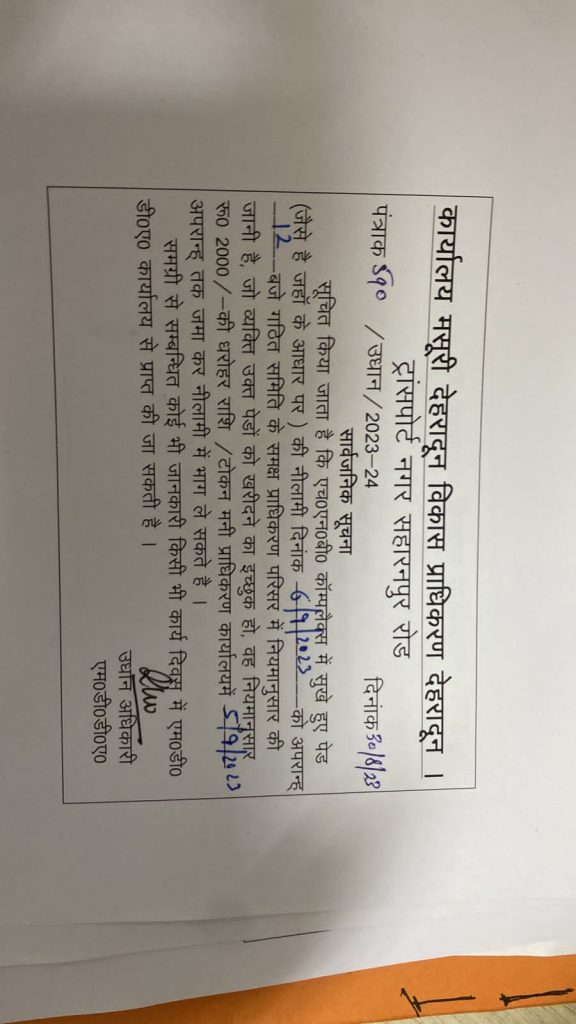 कार्यालय मसूरी देहरादून विकास प्राधिकरण देहरादून ।
ट्रांसपोर्ट नगर सहारनपुर रोड
पंत्राक 590 /उद्यान/2023–24 दिनांक 30/8/23
सार्वजनिक सूचना
सुचित किया जाता है कि एच0एन0बी0 कॉम्पलैक्स में सुखे हुए पेड
(जैसे है जहाँ के आधार पर ) की नीलामी दिनांक 6/9/2023 को अपरान्ह्
12 बजे गठित समिति के समक्ष प्राधिकरण परिसर में नियमानुसार की
जानी है, जो व्यक्ति उक्त पेड़ों को खरीदने का इच्छुक हो, वह नियमानुसार
रू0 2000/–की धरोहर राशि /टोकन मनी प्राधिकरण कार्यालयमें 5/9/2023
अपरान्ह् तक जमा कर नीलामी में भाग ले सकते है ।
समग्री से सम्बन्धित कोई भी जानकारी किसी भी कार्य दिवस में एम0डी0
डी0ए0 कार्यालय से प्राप्त की जा सकती है ।
उद्यान अधिकारी
एम0डी0डी0ए0